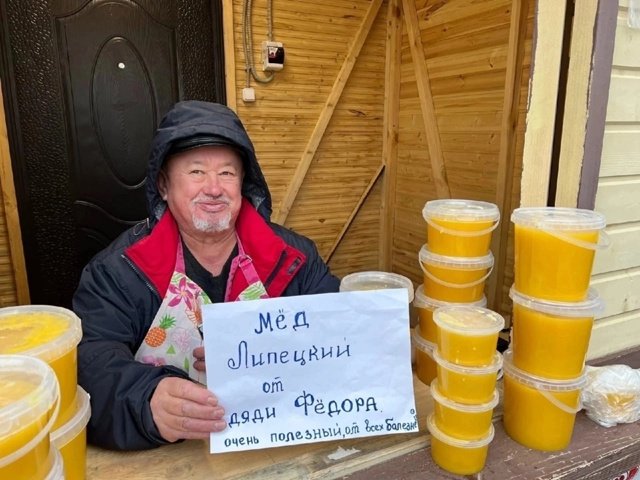 МЁД
Липецкий
от
дяди Фёдора.
очень полезный, от всех болезней